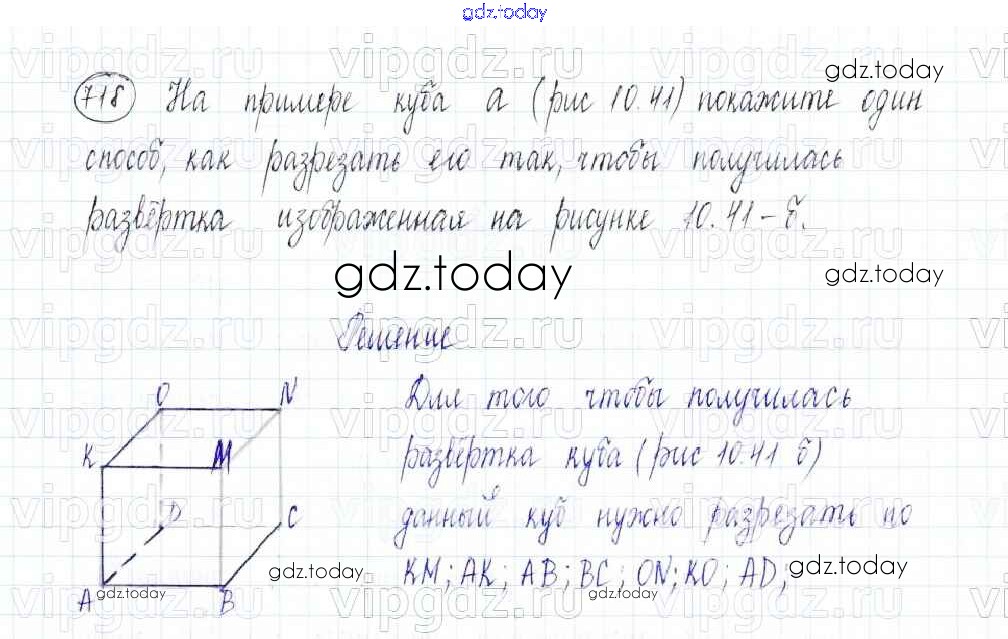 gdz.today
718 На примере куба а (рис 10.41) покажите один
способ, как разрезать его так, чтобы получилась
развёртка изображенная на рисунке 10.41-б.
gdz.today
gdz.today
gdz.today
Решение
Для того чтобы получилась
развёртка куба (рис 10.41 б)
данный куб нужно разрезать по
KM; AK; AB; BC; ON; KO; AD;
O N
K M
D C
A B
gdz.today
gdz.today
gdz.today
gdz.today
vipgdz.ru